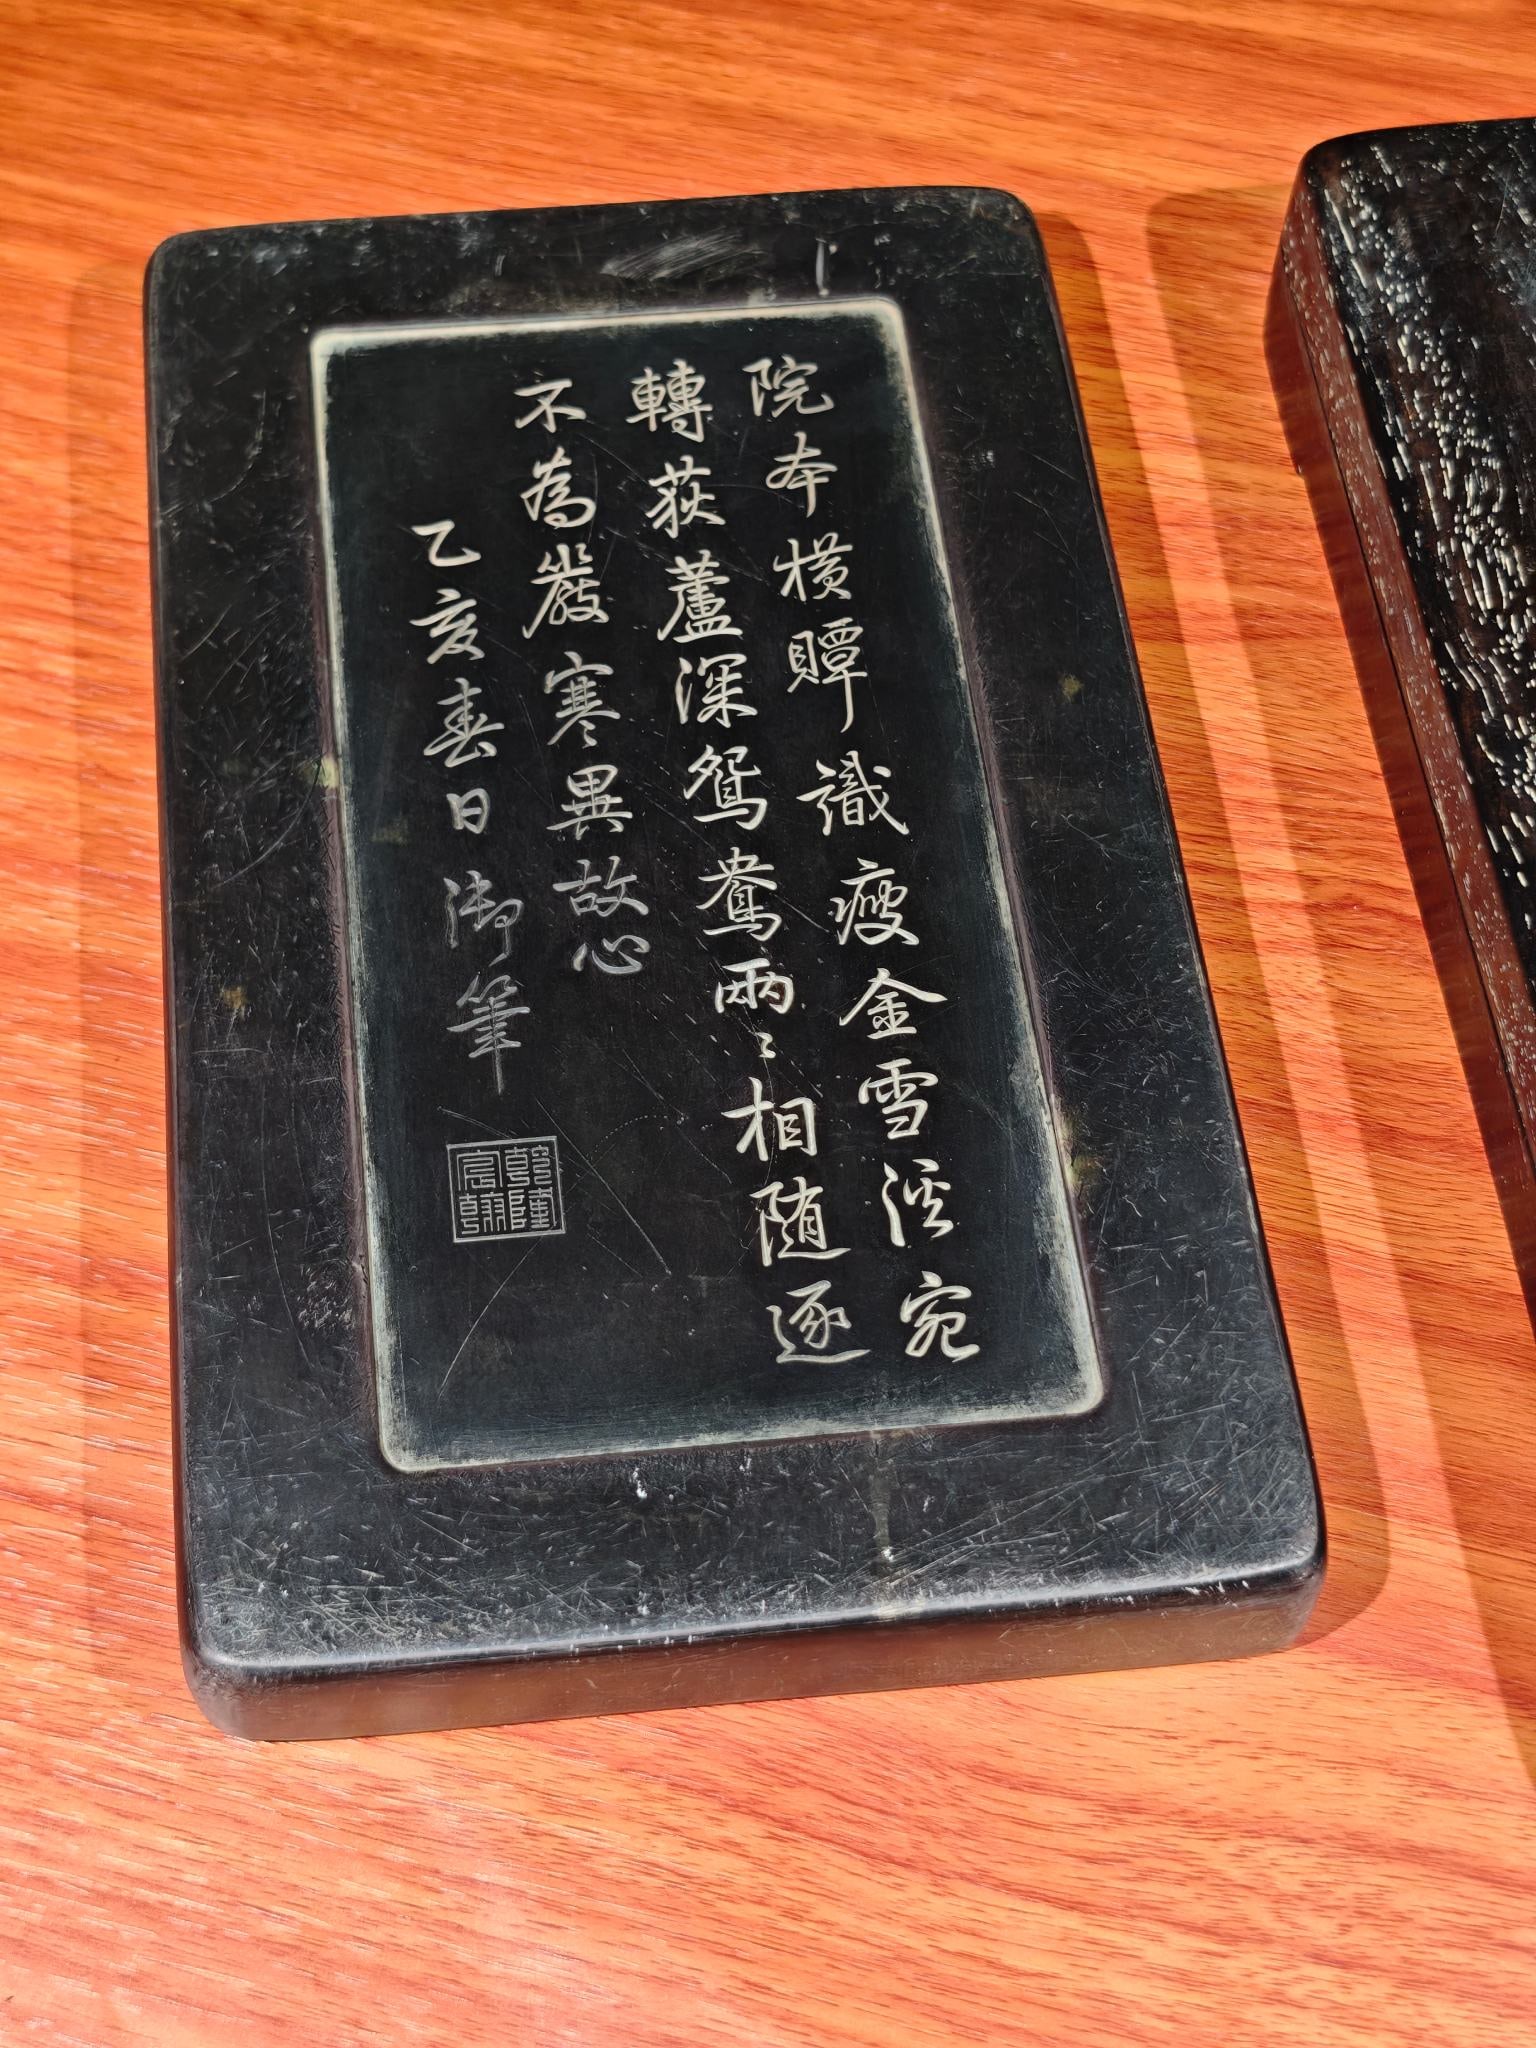 院本橫贉識瘦金雪溪宛
轉荻蘆深鴛鴦兩〻相隨逐
不為嚴寒異故心
乙亥春日御筆
乾隆宸翰